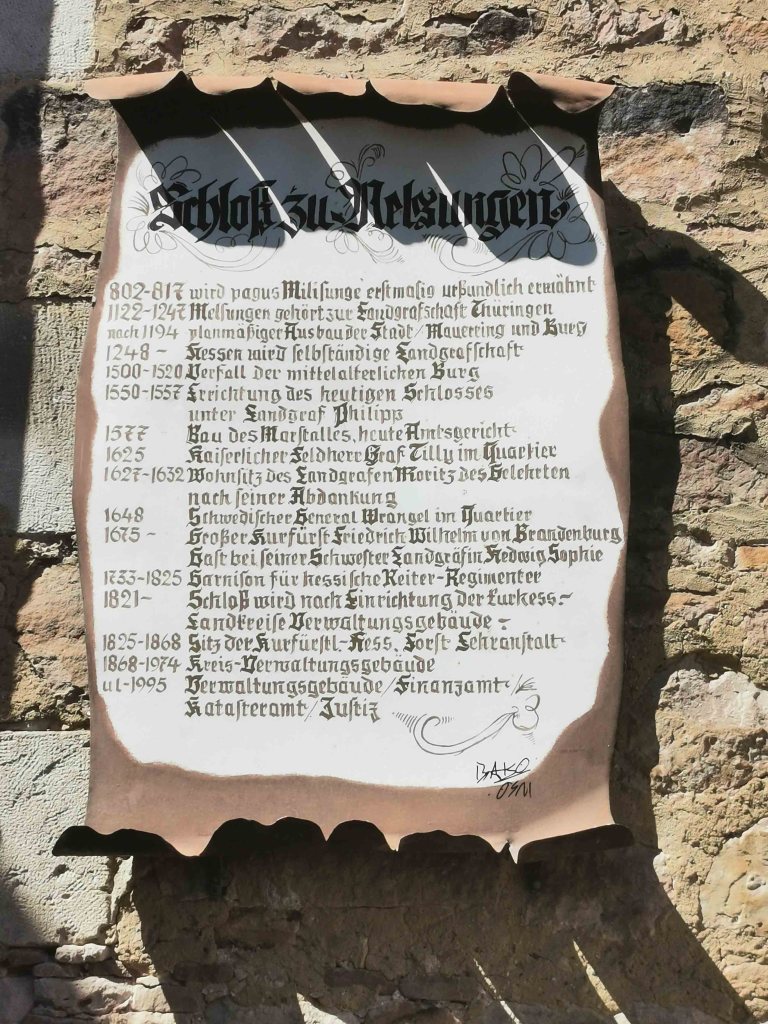 Schloß zu Melsungen
802-817 wird pagus Milisunge erstmasig urkundlich erwähnt
1122-1247 Melsungen gehört zur Landgrafschaft Thüringen
nach 1194 planmäßiger Ausbau der Stadt/Mauerring und Burg
1248 - Hessen wird selbständige Landgrafschaft
1500-1520 Verfall der mittelalterlichen Burg
1550-1557 Errichtung des heutigen Schlosses
unter Landgraf Philipp
1577 Bau des Marstalles, heute Amtsgericht
1625 Kaiserlicher Feldherr Graf Tilly im Quartier
1627-1632 Wohnsitz des Landgrafen Moritz des Gelehrten
nach seiner Abdankung
1648 Schwedischer General Wrangel im Quartier
1675 - Großer Kurfürst Friedrich Wilhelm von Brandenburg
Gast bei seiner Schwester Landgräfin Hedwig Sophie
1733-1825 Garnison für hessische Reiter-Regimenter
1821- Schloß wird nach Einrichtung der kurhess.-
Landkreise Verwaltungsgebäude -
1825-1868 Sitz der Kurfürstl-Hess. Forst Lehranstalt
1868-1974 Kreis-Verwaltungsgebäude
-1995 Verwaltungsgebäude/Finanzamt/
Katasteramt/Justiz
BAKO